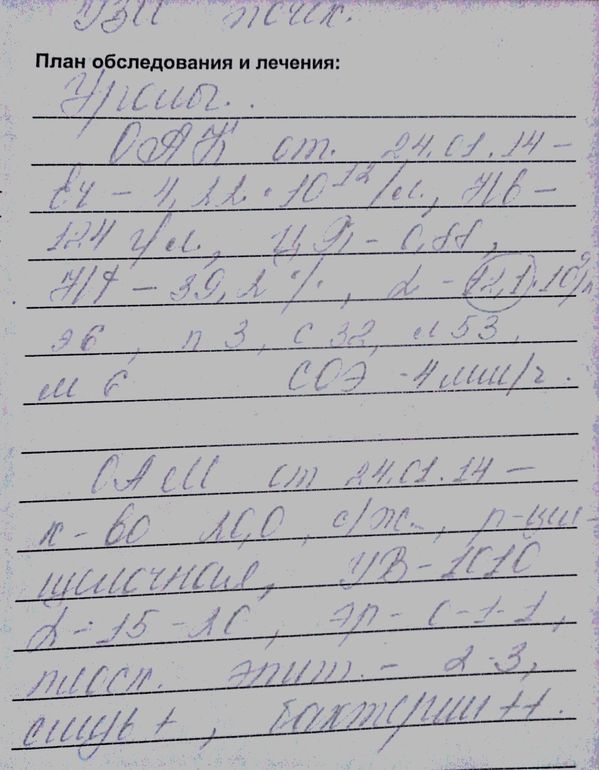 УЗИ почек.
План обследования и лечения:
ОАК от 24.01.14 –
Er – 4,22·10¹²/л, Нв –
124 г/л, ЦП – 0,88,
Нt – 39,2 %, L – 12,1·10⁹/л
э 6, п 3, с 32, л 53,
м 6 СОЭ - 4 мм/ч.
ОАМ от 24.01.14 –
к-во 20,0, с/ж, р-ция -
щелочная, УВ – 1010
L - 15 - 20, эр – 0-1-1,
плоск. эпит. – 2-3,
слизь +, бактерии ++.